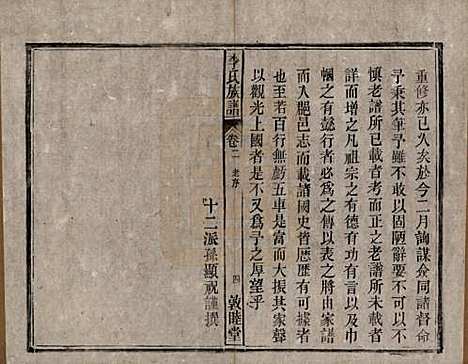 重修亦已久矣於今二月詢謀僉同諸督命
予秉其筆予雖不敢以固陋辭要不可以
慎老譜所已載者考而正之老譜所未載者
詳而增之凡祖宗之有德有功以及巾
幗之有懿行者必為之傳以表之將由家譜
而入郡邑志而載諸國史皆歷歷有可據者
也至若百行無虧五車是富而大振其家聲
以觀光上國者是不又為予之厚望乎
十二派孫顯 謹撰
李氏族譜
卷二
老序
四
敦睦堂